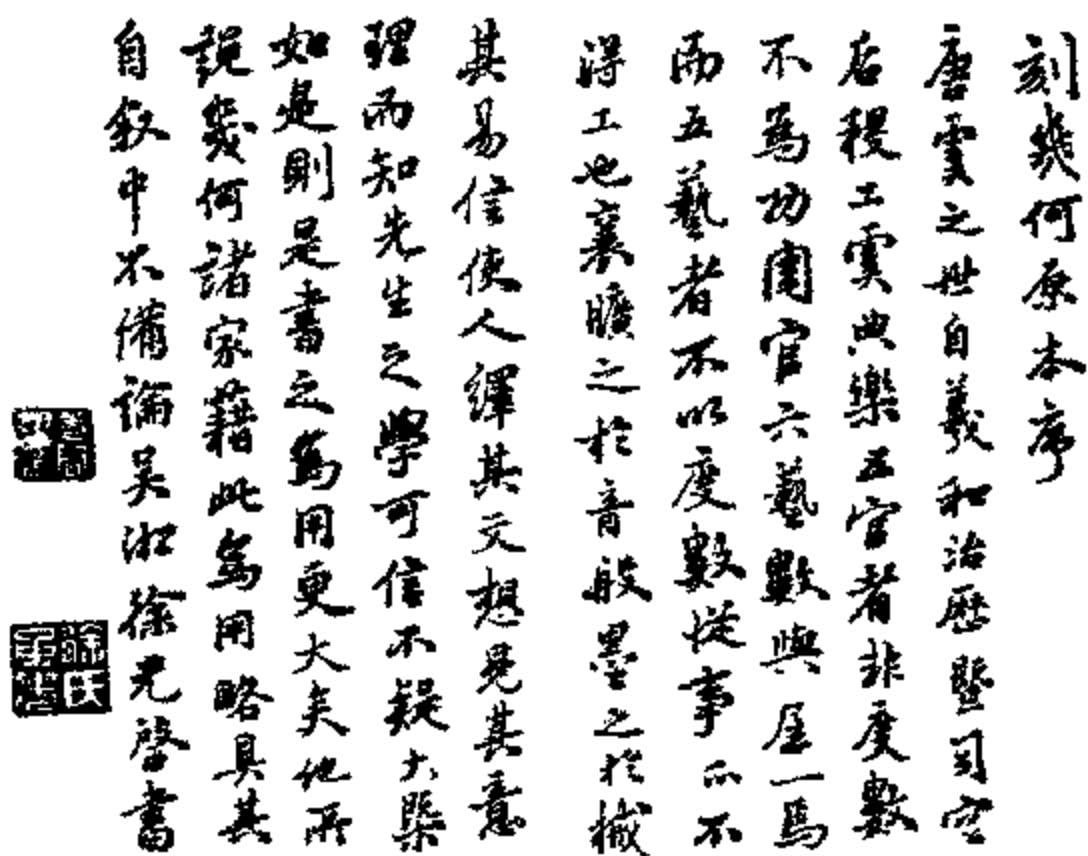 刻幾何原本序
唐虞之世自羲和治厯暨司空
后稷工虞典樂五官者非度數
不為功周官六藝數與居一焉
而五藝者不以度數從事亦不
得工也襄曠之於音般墨之於械
其易信使人繹其文想見其意
理而知先生之學可信不疑大槩
如是則是書之為用更大矣他所
說幾何諸家藉此為用略具其
自叙中不備論吳淞徐光啓書
徐氏